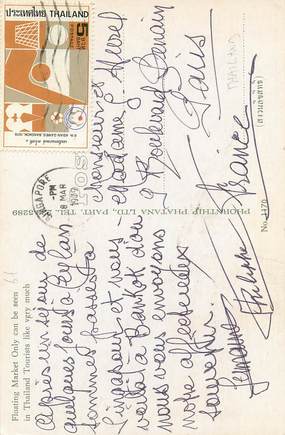 Floating Market Only can be seen
in Thailand Tourists like very much
Après un séjour de
quelques jours à Ceylan
sommes passés à
Singapour et nous
voilà à Bankok d'où
nous vous envoyons
notre affectueux
souvenir.
PHORNTHIP PHATANA LTD., PART. TEL.
-5289
SINGAPORE
-PM
8 MAR
1980
ประเทศไทย THAILAND
5
8TH ASIAN GAMES BANGKOK 1978
Monsieur et
Madame
Boulevard
Paris
France
THAILAND
(สงวนลิขสิทธิ์)
No. 1170